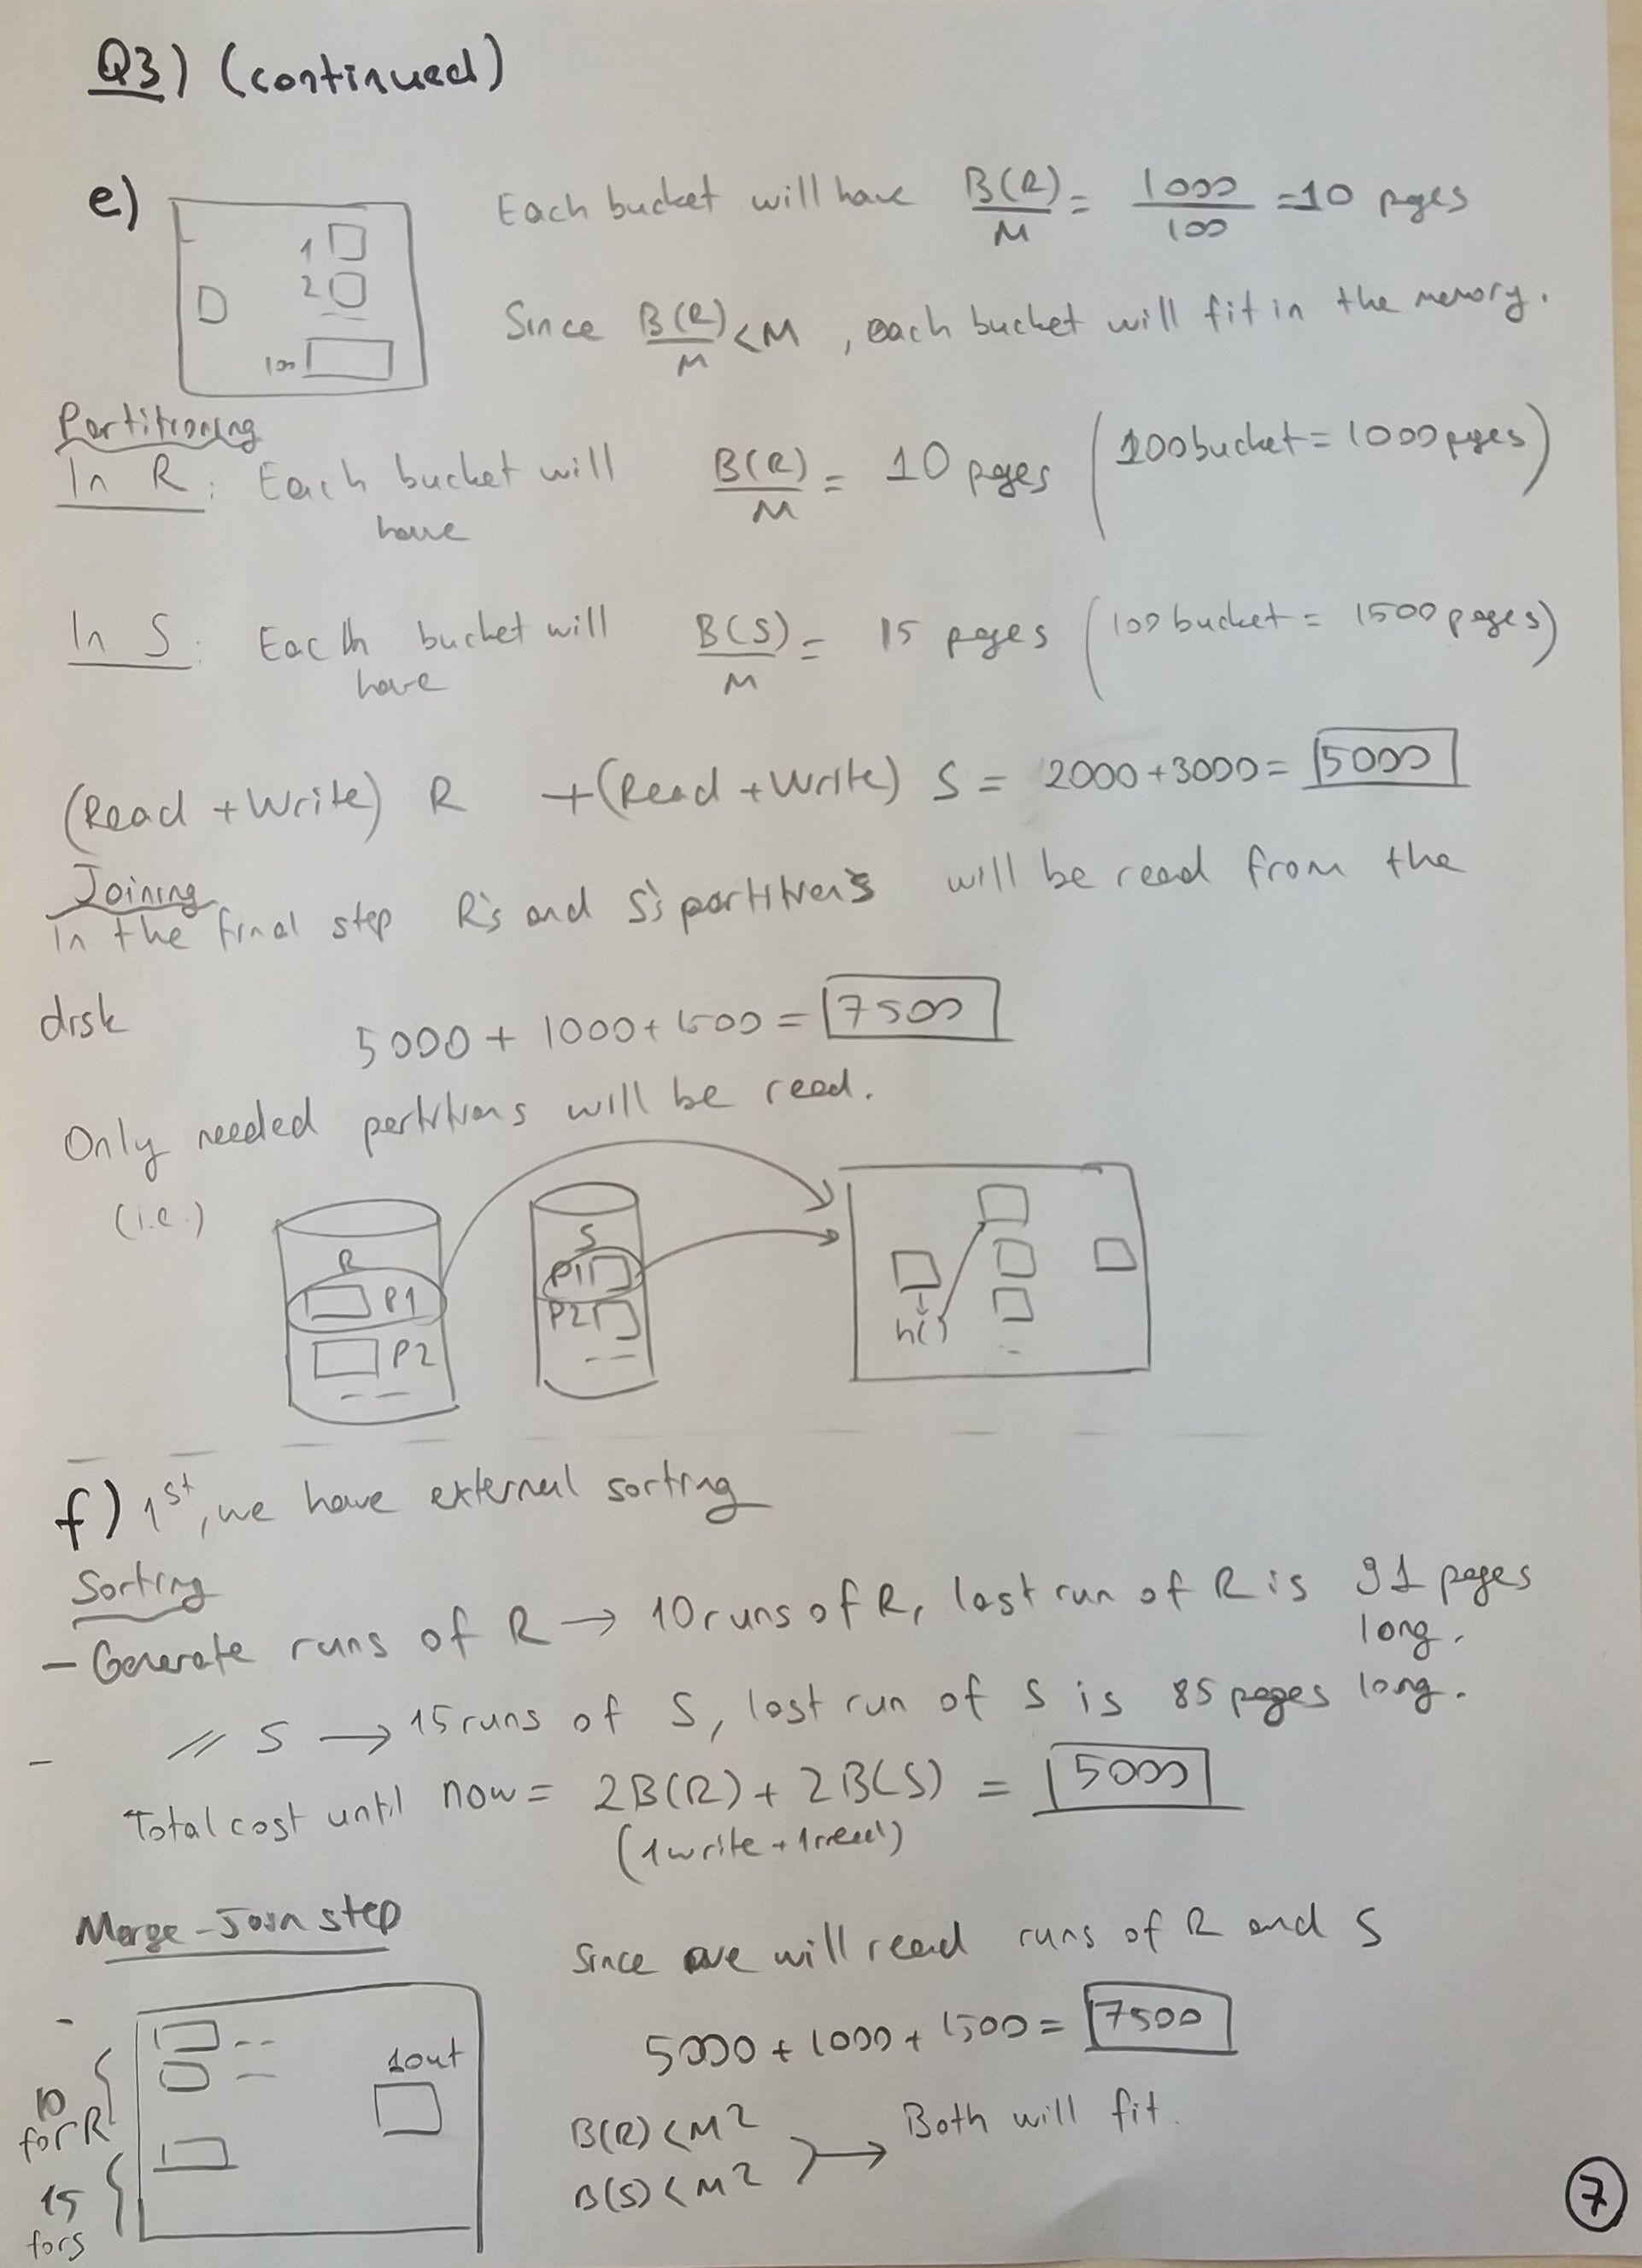 Q3) (continued)
e) Each bucket will have B(R)/M = 1000/100 = 10 pages
1
2
100
Since B(R)/M < M , each bucket will fit in the memory.
Partitioning
In R: Each bucket will have B(R)/M = 10 pages (100 bucket = 1000 pages)
In S: Each bucket will have B(S)/M = 15 pages (100 bucket = 1500 pages)
(Read + Write) R + (Read + Write) S = 2000 + 3000 = 5000
Joining
In the final step R's and S's partitions will be read from the
disk 5000 + 1000 + 1500 = 7500
Only needed partitions will be read.
(i.e.)
R
P1
P2
S
P1
P2
h()
f) 1st, we have external sorting
Sorting
- Generate runs of R → 10 runs of R, last run of R is 91 pages long.
- // S → 15 runs of S, last run of S is 85 pages long.
Total cost until now = 2B(R) + 2B(S) = 5000
(1 write + 1 read)
Merge-Join step
Since we will read runs of R and S
5000 + 1000 + 1500 = 7500
10 for R
15 for S
1 out
B(R) < M2
B(S) < M2
→ Both will fit.
7